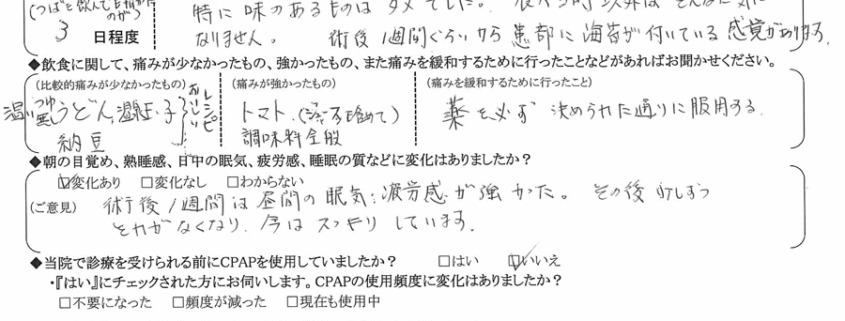 特に味のあるものはダメでした。
3 日程度
なりません。 術後1週間ぐらいから患部に海苔が付いている感覚があります。
◆飲食に関して、痛みが少なかったもの、強かったもの、また痛みを緩和するために行ったことなどがあればお聞かせください。
(比較的痛みが少なかったもの) (痛みが強かったもの) (痛みを緩和するために行ったこと)
うどん, 納豆 トマト(ジュースも含めて) 調味料全般 薬を必ず決められた通りに服用する。
◆朝の目覚め、熟睡感、日中の眠気、疲労感、睡眠の質などに変化はありましたか?
☑変化あり □変化なし □わからない
(ご意見) 術後1週間は昼間の眠気:疲労感が強かった。 その後 少しずつ
それがなくなり、今はスッキリしています。
◆当院で診療を受けられる前にCPAPを使用していましたか? □はい ☑いいえ
・『はい』にチェックされた方にお伺いします。CPAPの使用頻度に変化はありましたか?
□不要になった □頻度が減った □現在も使用中